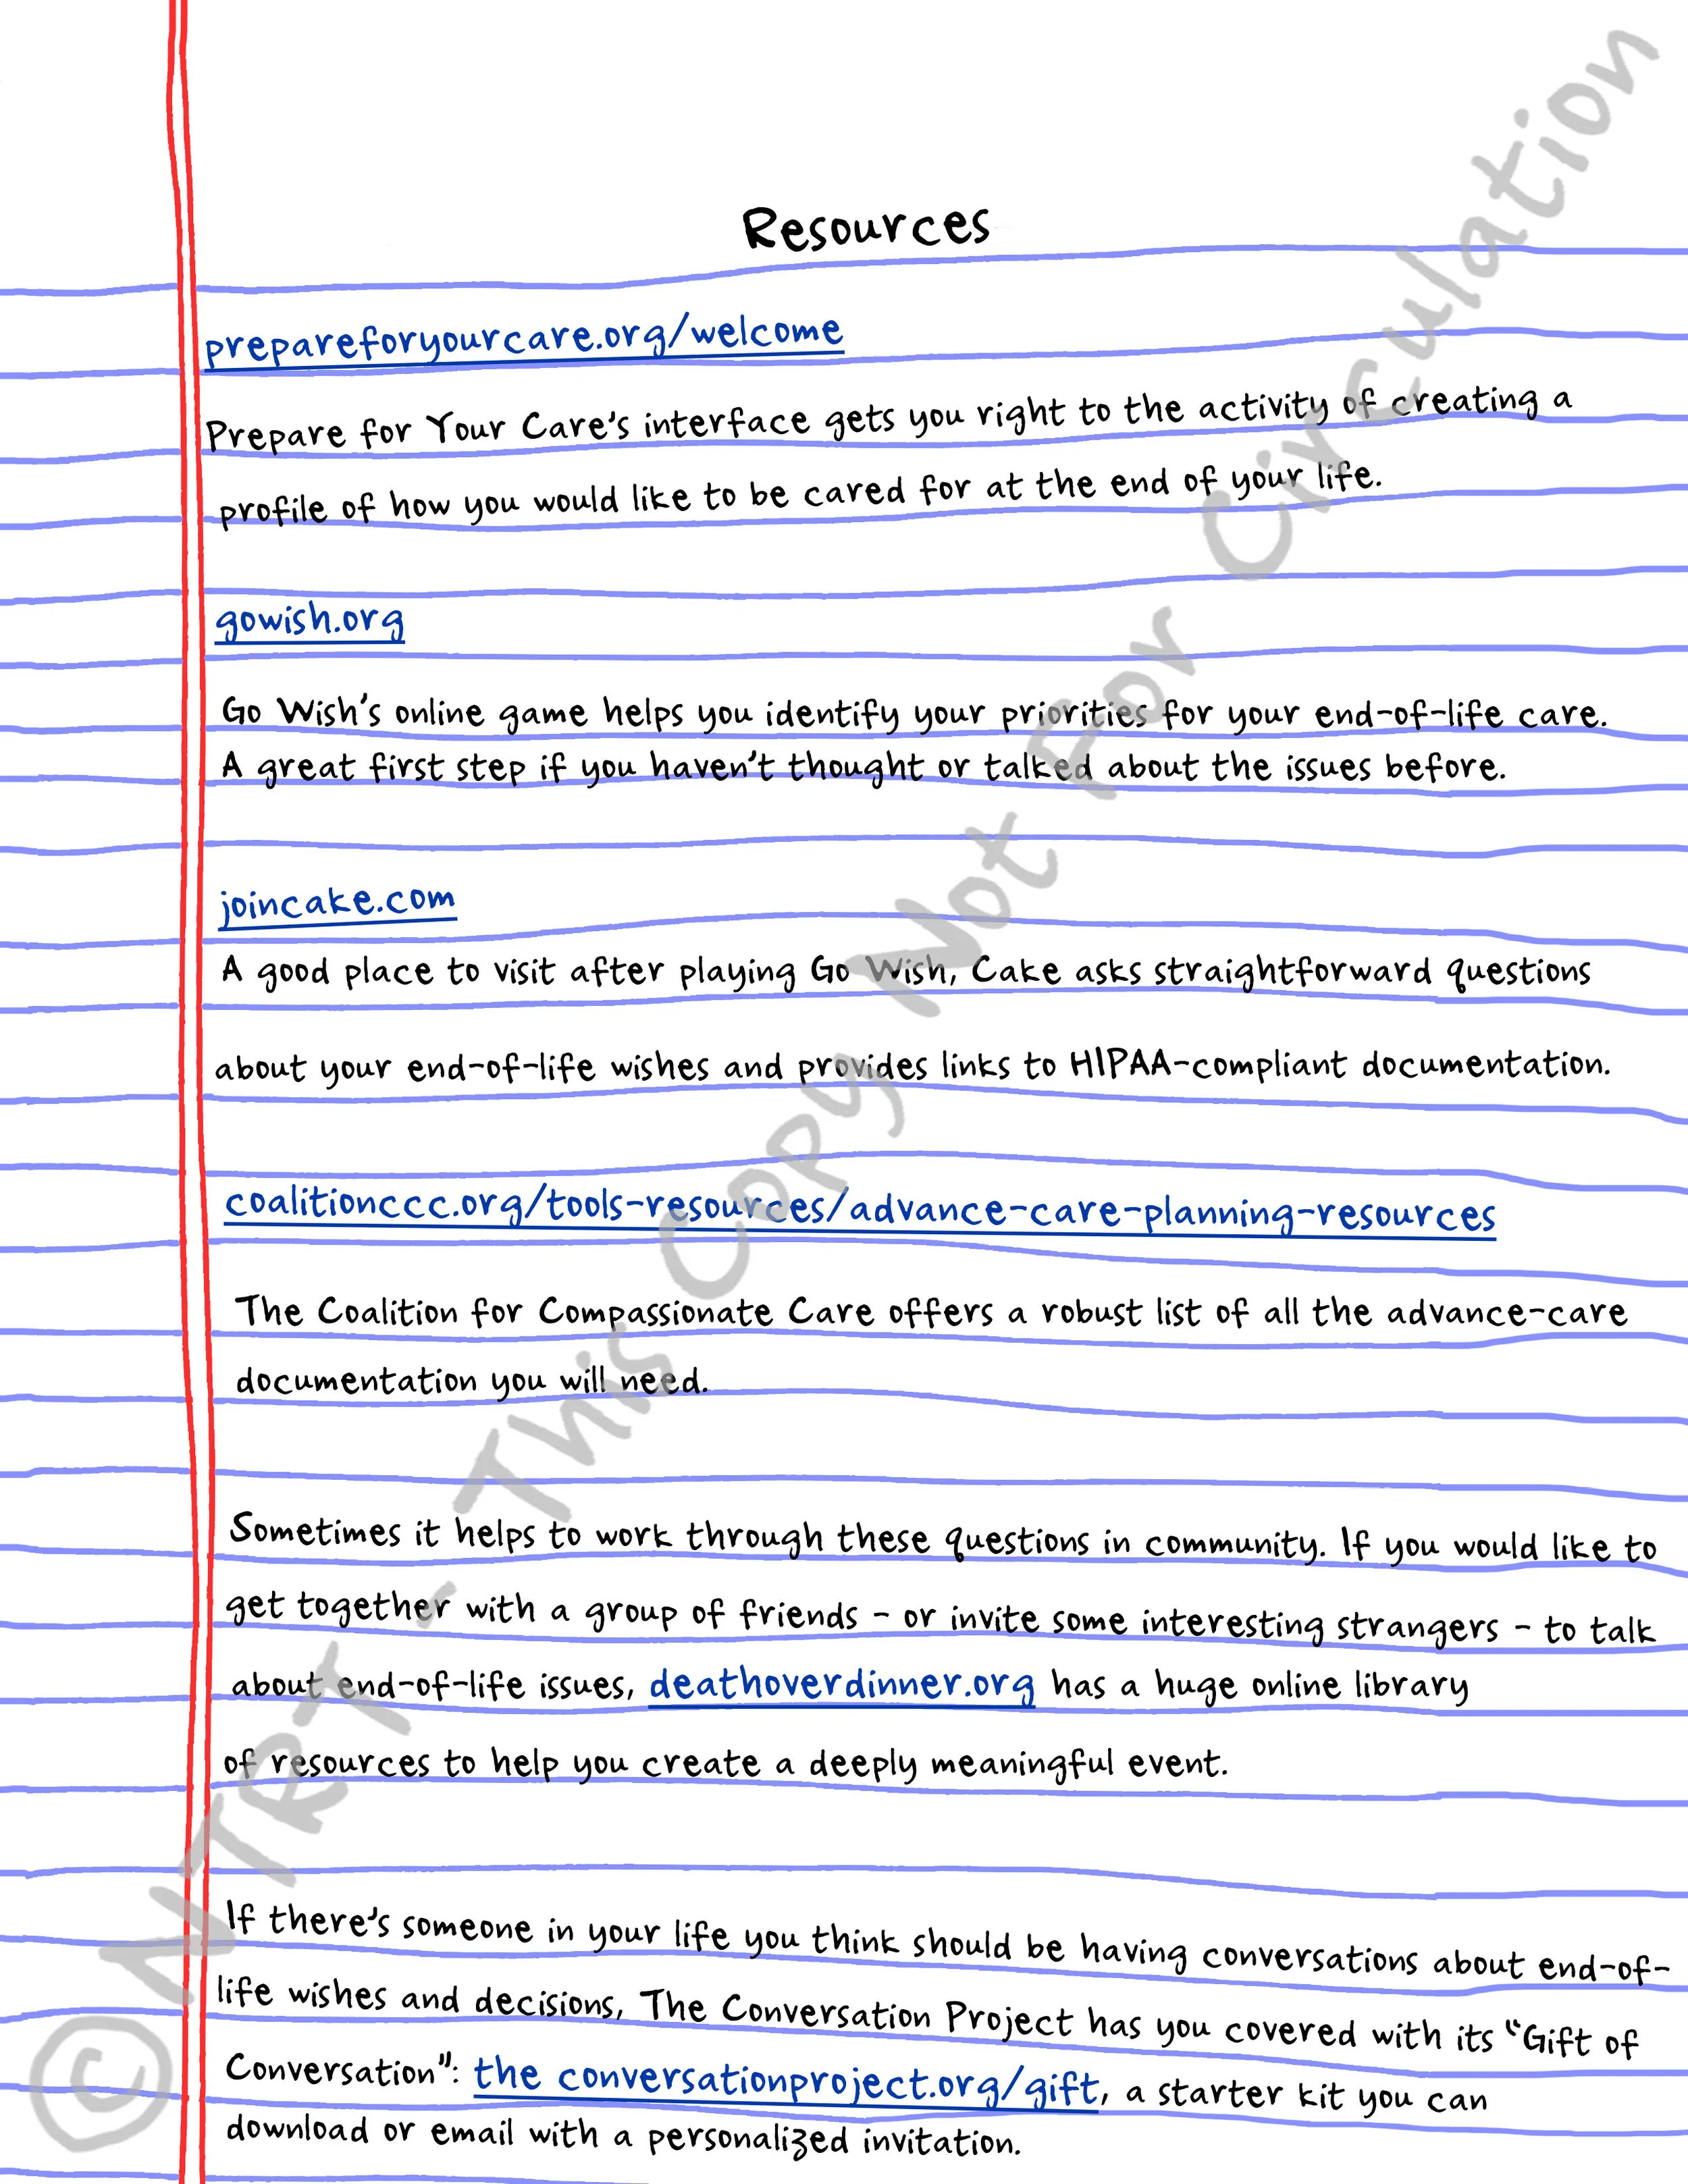 Resources
prepareforyourcare.org/welcome
Prepare for Your Care's interface gets you right to the activity of creating a
profile of how you would like to be cared for at the end of your life.
gowish.org
Go Wish's online game helps you identify your priorities for your end-of-life care.
A great first step if you haven't thought or talked about the issues before.
joincake.com
A good place to visit after playing Go Wish, Cake asks straightforward questions
about your end-of-life wishes and provides links to HIPAA-compliant documentation.
coalitionccc.org/tools-resources/advance-care-planning-resources
The Coalition for Compassionate Care offers a robust list of all the advance-care
documentation you will need.
Sometimes it helps to work through these questions in community. If you would like to
get together with a group of friends - or invite some interesting strangers - to talk
about end-of-life issues, deathoverdinner.org has a huge online library
of resources to help you create a deeply meaningful event.
If there's someone in your life you think should be having conversations about end-of-
life wishes and decisions, The Conversation Project has you covered with its "Gift of
Conversation": the conversationproject.org/gift, a starter kit you can
download or email with a personalized invitation.
© NTRT - This Copy Not For Circulation